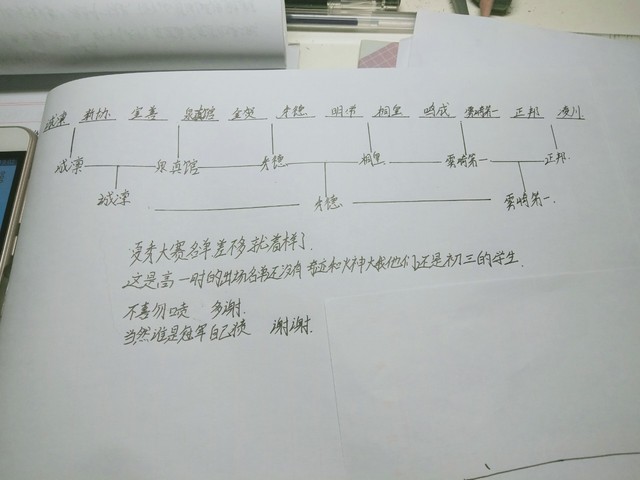 诚凛 新协 宝善 泉真馆 金贺 秀德 明常 桐皇 鸣成 霧崎第一 正邦
诚凛 泉真馆 秀德 桐皇 霧崎第一 正邦
诚凛 秀德 霧崎第一
夏季大赛名单差不多就着样了
这是高一时的出场名单还没有奇迹和火神大我他们还是初三的学生
不喜勿喷 多谢.
当然谁是冠军自己猜 谢谢.